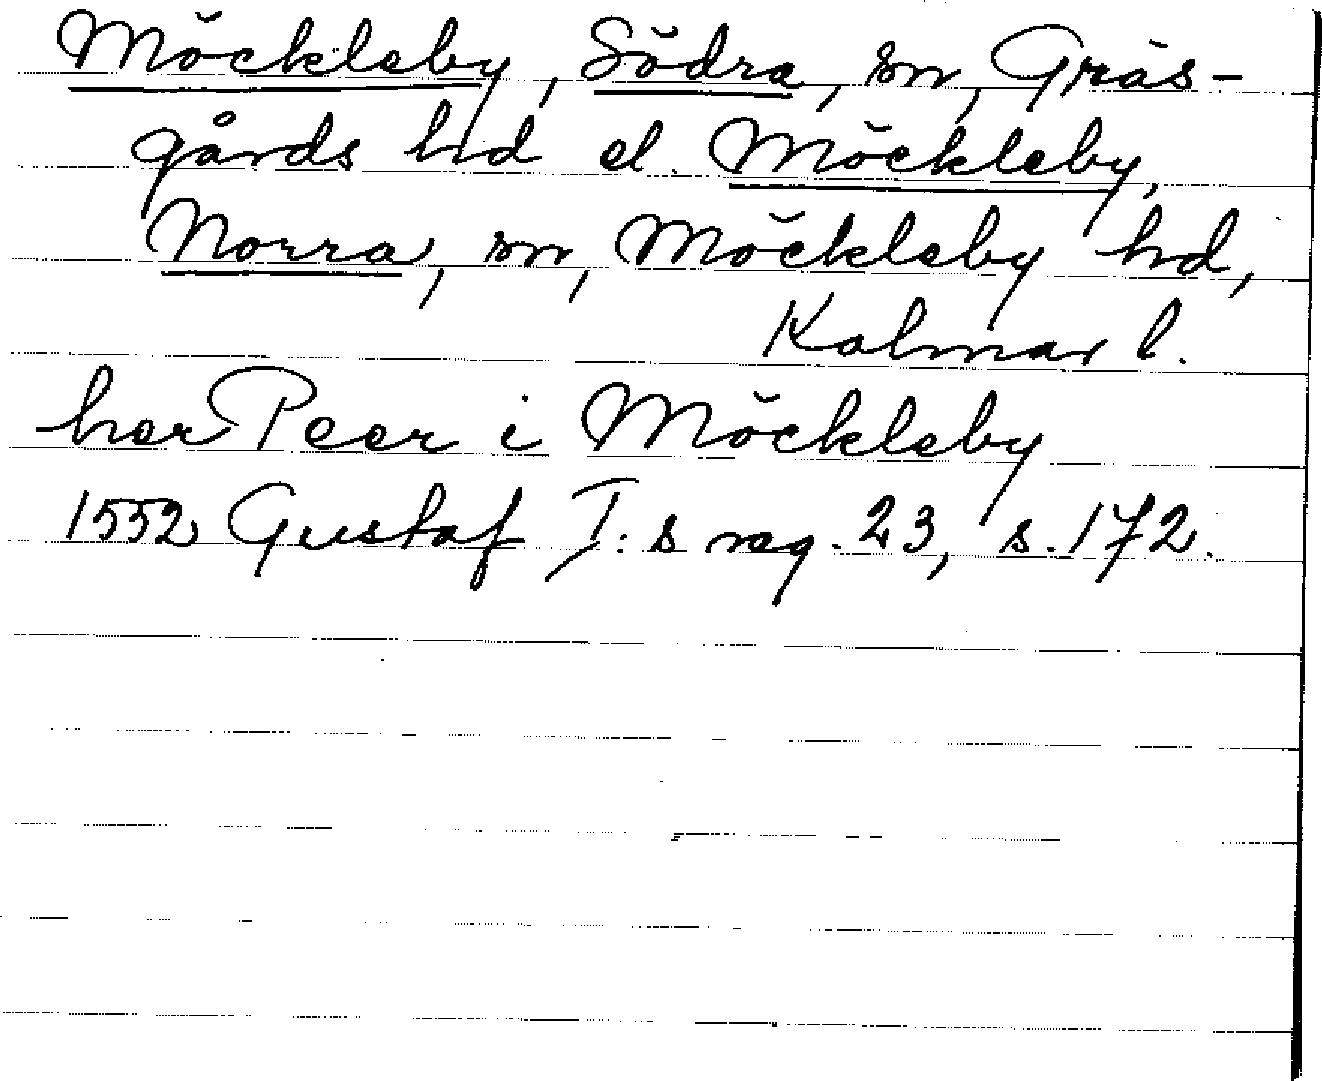 Möckleby, Södra, sn, Gräs-
gårds hd el. Möckleby,
Norra, sn, Möckleby hd,
Kalmar l.
her Peer i Möckleby
1552 Gustaf I:s reg. 23, s. 172.